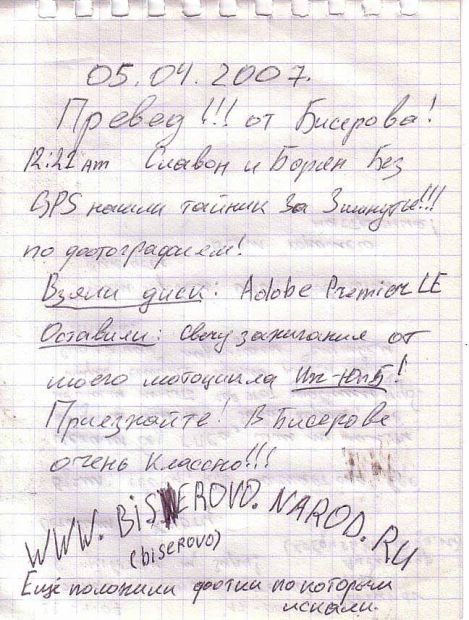 05.04.2007.
Превед!!! от Бисерова!
12:21 am Славон и Борян Без
GPS нашли тайник За 3 минуты!!!
по фотографием!
Взяли диск: Adobe Premier LE
Оставили: свечу зажигания от
моего мотоцикла Иж-Юп5!
Приезжайте! В Бисерове
очень классно!!!
WWW.BISEROVO.NAROD.RU
(biserovo)
Ещё положили фотки по которым
искали.